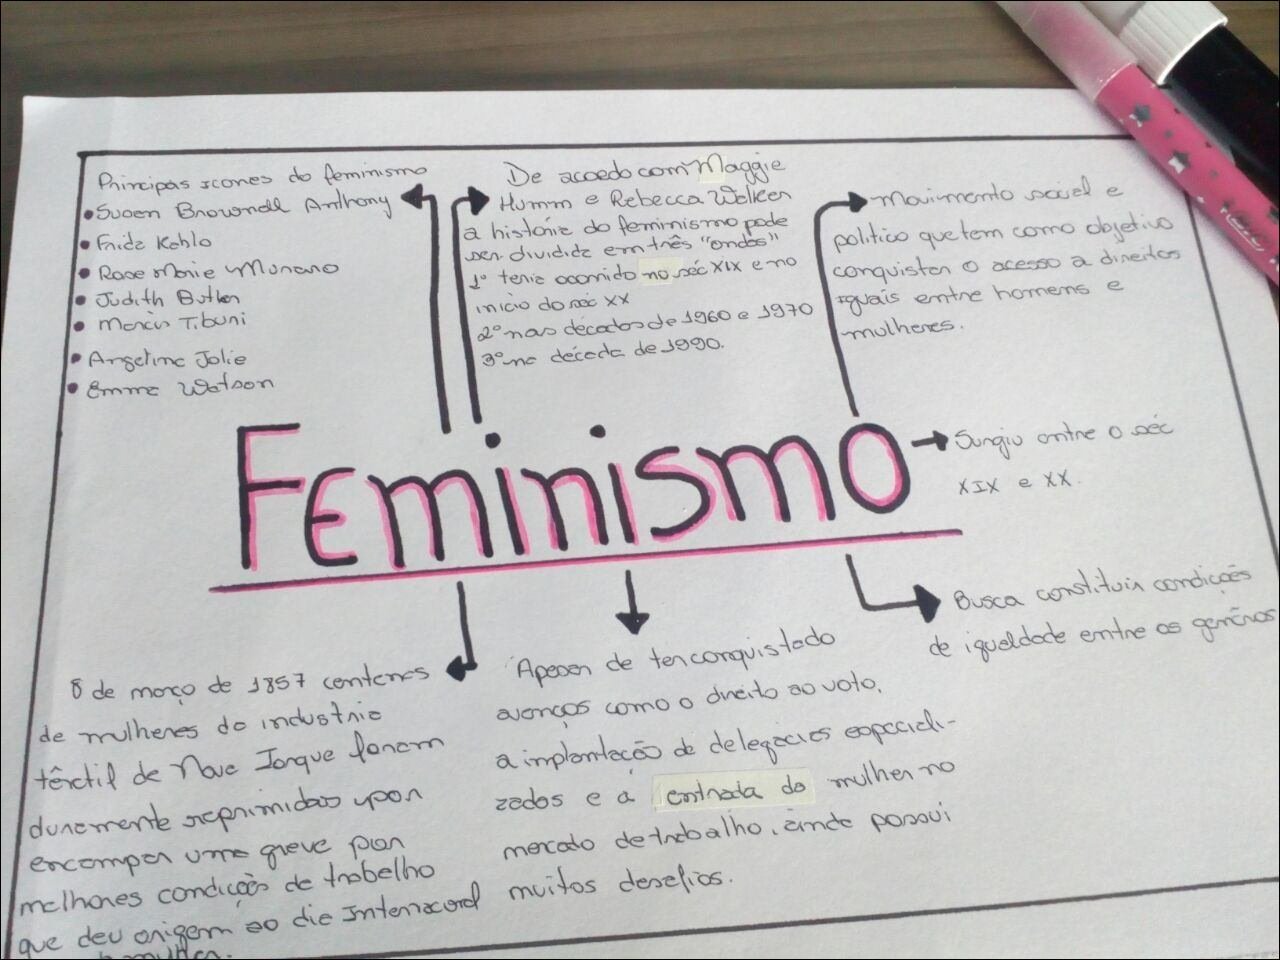 Principais icones do feminismo
• Susan Brownell Anthony
• Frida Kahlo
• Rose Marie Muraro
• Judith Butler
• Marcia Tiburi
• Angelina Jolie
• Emma Watson
De acordo com Maggie
Humm e Rebecca Walker
a história do feminismo pode
ser dividida em três "ondas"
1º teria ocorrido no séc XIX e no
inicio do séc XX
2º nas décadas de 1960 e 1970
3º na década de 1990.
Movimento social e
politico que tem como objetivo
conquistar o acesso a direitos
iguais entre homens e
mulheres.
Feminismo
Surgiu entre o séc
XIX e XX.
Busca constituir condições
de igualdade entre os gêneros
8 de março de 1857 centenas
de mulheres da industria
têxtil de Nova Iorque foram
duramente reprimidas por
encampar uma greve por
melhores condições de trabalho
que deu origem ao dia Internacional
da mulher.
Apesar de ter conquistado
avanços como o direito ao voto,
a implantação de delegacias especiali-
zadas e a entrada da mulher no
mercado de trabalho, ainda possui
muitos desafios.